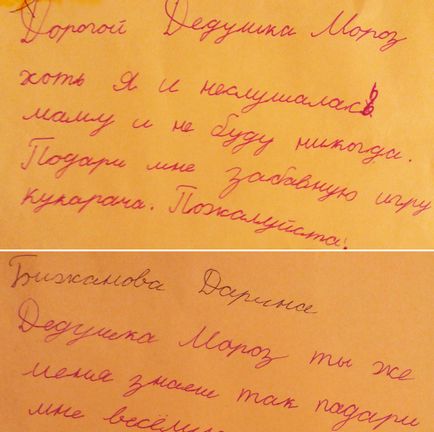 Дорогой Дедушка Мороз
хоть Я и неслушалась
маму и не буду никогда.
Подари мне забавную игру
кукарача. Пожалуйста!
Бижанова Дарина
Дедушка Мороз ты же
меня знаеш так падари
мне весёлую